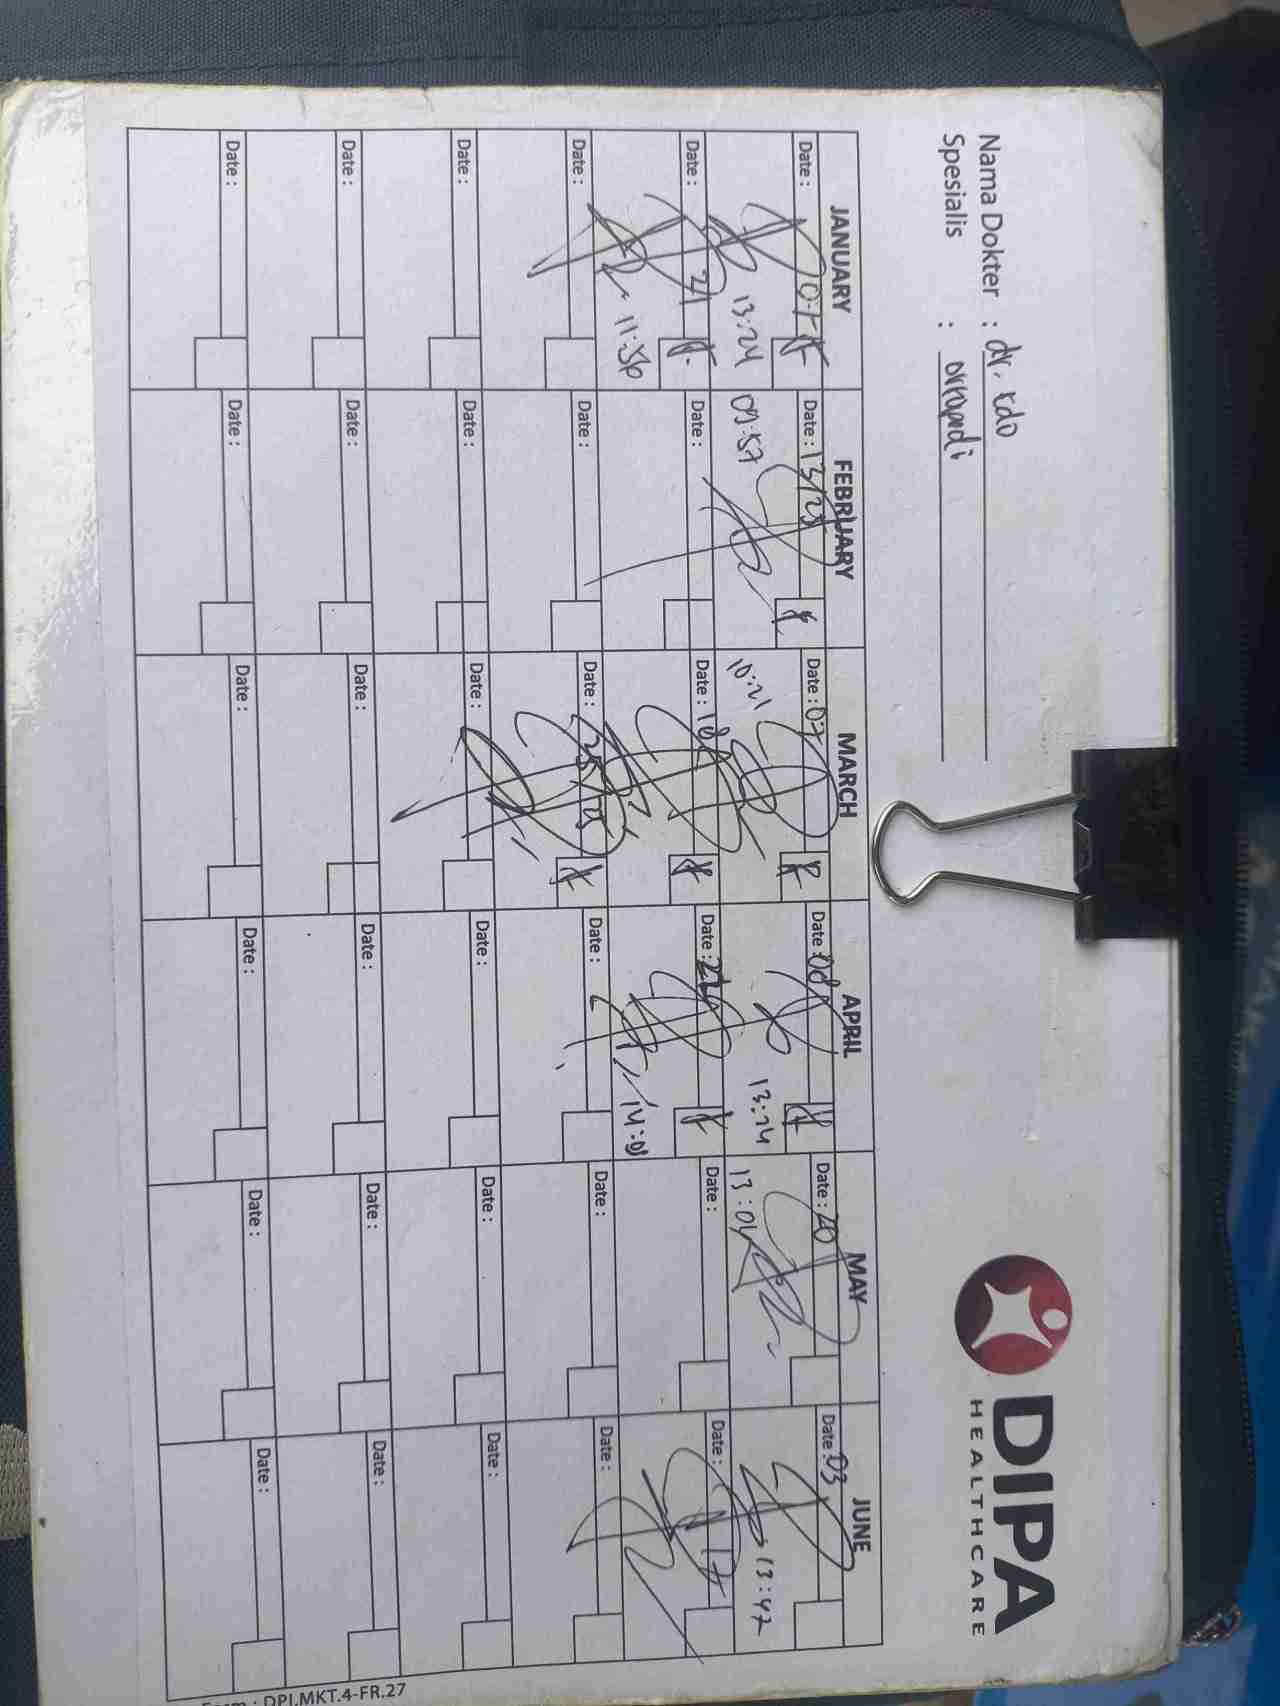 Nama Dokter : dr. edo
Spesialis :
DIPA
HEALTHCARE
JANUARY FEBRUARY MARCH APRIL MAY JUNE
Date : Date : 13/25 Date : 07 Date : 08 Date : 20 Date : 03
13:24 09:57 10:21 13:24 13:04 13:47
Date : 21 Date : Date : 18 Date : 22 Date : Date : 17
11:56
Date : Date : Date : 25/25 Date : Date : Date :
Date : Date : Date : Date : Date : Date :
Date : Date : Date : Date : Date : Date :
Date : Date : Date : Date : Date : Date :
Form : DPI.MKT.4-FR.27